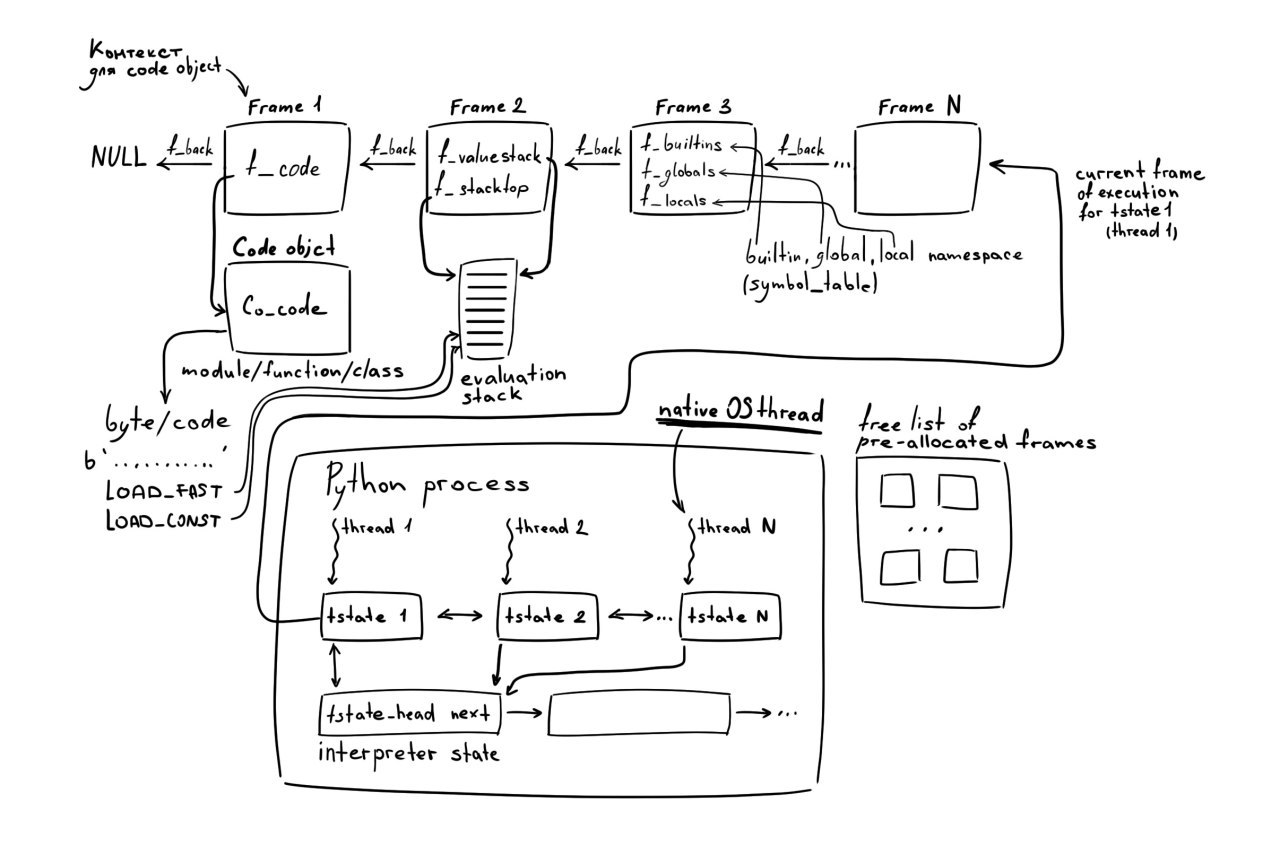 Контекст
для code object
Frame 1
Frame 2
Frame 3
Frame N
NULL
f_back
f_code
f_back
f_valuestack
f_stacktop
f_back
f_builtins
f_globals
f_locals
f_back
...
current frame
of execution
for tstate1
(thread 1)
Code objct
Co_code
builtin, global, local namespace
(symbol_table)
module/function/class
evaluation
stack
byte/code
b'..........'
LOAD_FAST
LOAD_CONST
native OS thread
free list of
pre-allocated frames
...
Python process
thread 1
thread 2
thread N
tstate 1
tstate 2
...
tstate N
tstate_head next
...
interpreter state